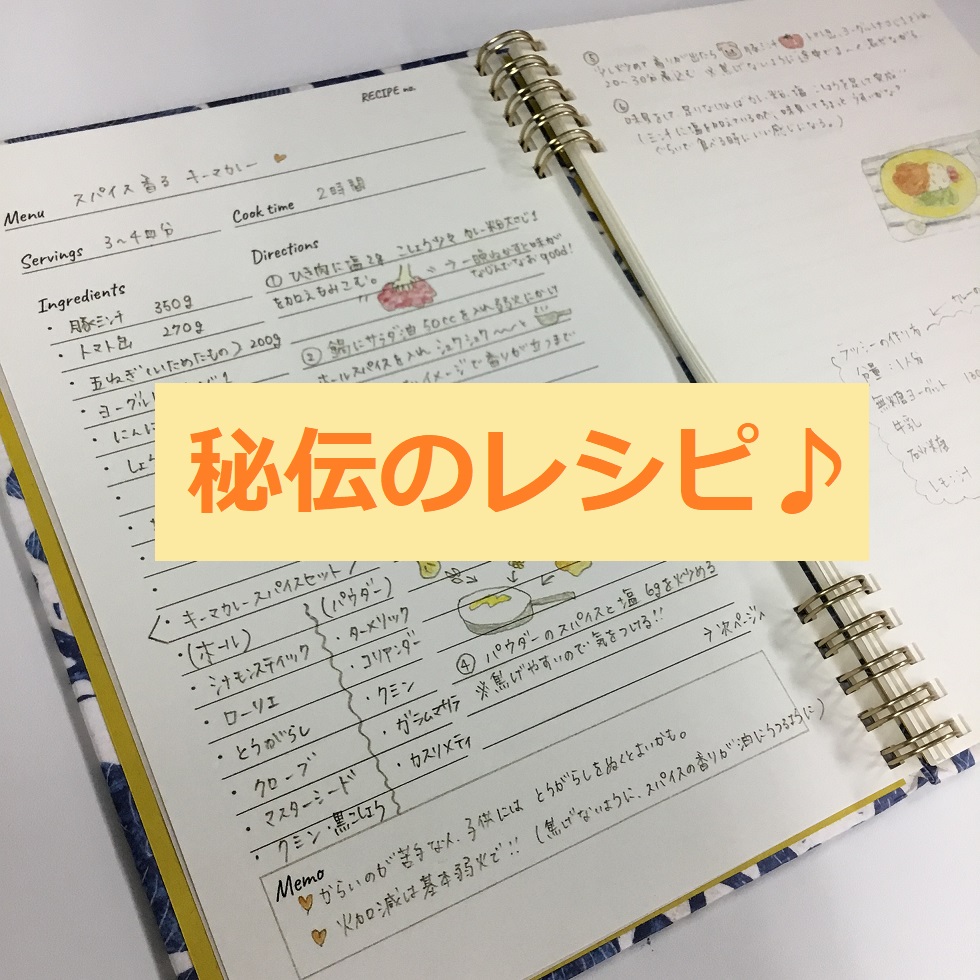 RECIPE no.
Menu スパイス香る キーマカレー
Servings 3〜4皿分
Cook time 2時間
Ingredients
・豚ミンチ 350g
・トマト缶 270g
・玉ねぎ(いためたもの) 200g
・ヨーグル
・にんに
・しょう
・キーマカレースパイスセット
・(ホール)
・シナモンスティック
・ローリエ
・とうがらし
・クローブ
・マスターシード
・クミン・黒こしょう
(パウダー)
・ターメリック
・コリアンダー
・クミン
・ガラムマサラ
・カスリメティ
Directions
① ひき肉に塩2g こしょう少々 カレー粉大さじ1
を加えもみこむ。 → 一晩ねかすと味が
なじんでなお good!
② 鍋にサラダ油 50ccを入れ弱火にかけ
ホールスパイスを入れ シュワシュワ〜〜と
イメージで香りが立つまで
秘伝のレシピ♪
④ パウダーのスパイスと塩 6gを炒める
※焦げやすいので気をつける!!
→次ページへ
Memo
からいのが苦手な人、子供には とうがらしをぬくとよいかも。
火加減は基本弱火で!! (焦げないように、スパイスの香りが油にうつるように)
⑤
20〜30分煮込む ※焦げないように途中で
⑥
ラッシーの作り方
分量:1人分
無糖ヨーグルト
牛乳
レモン汁